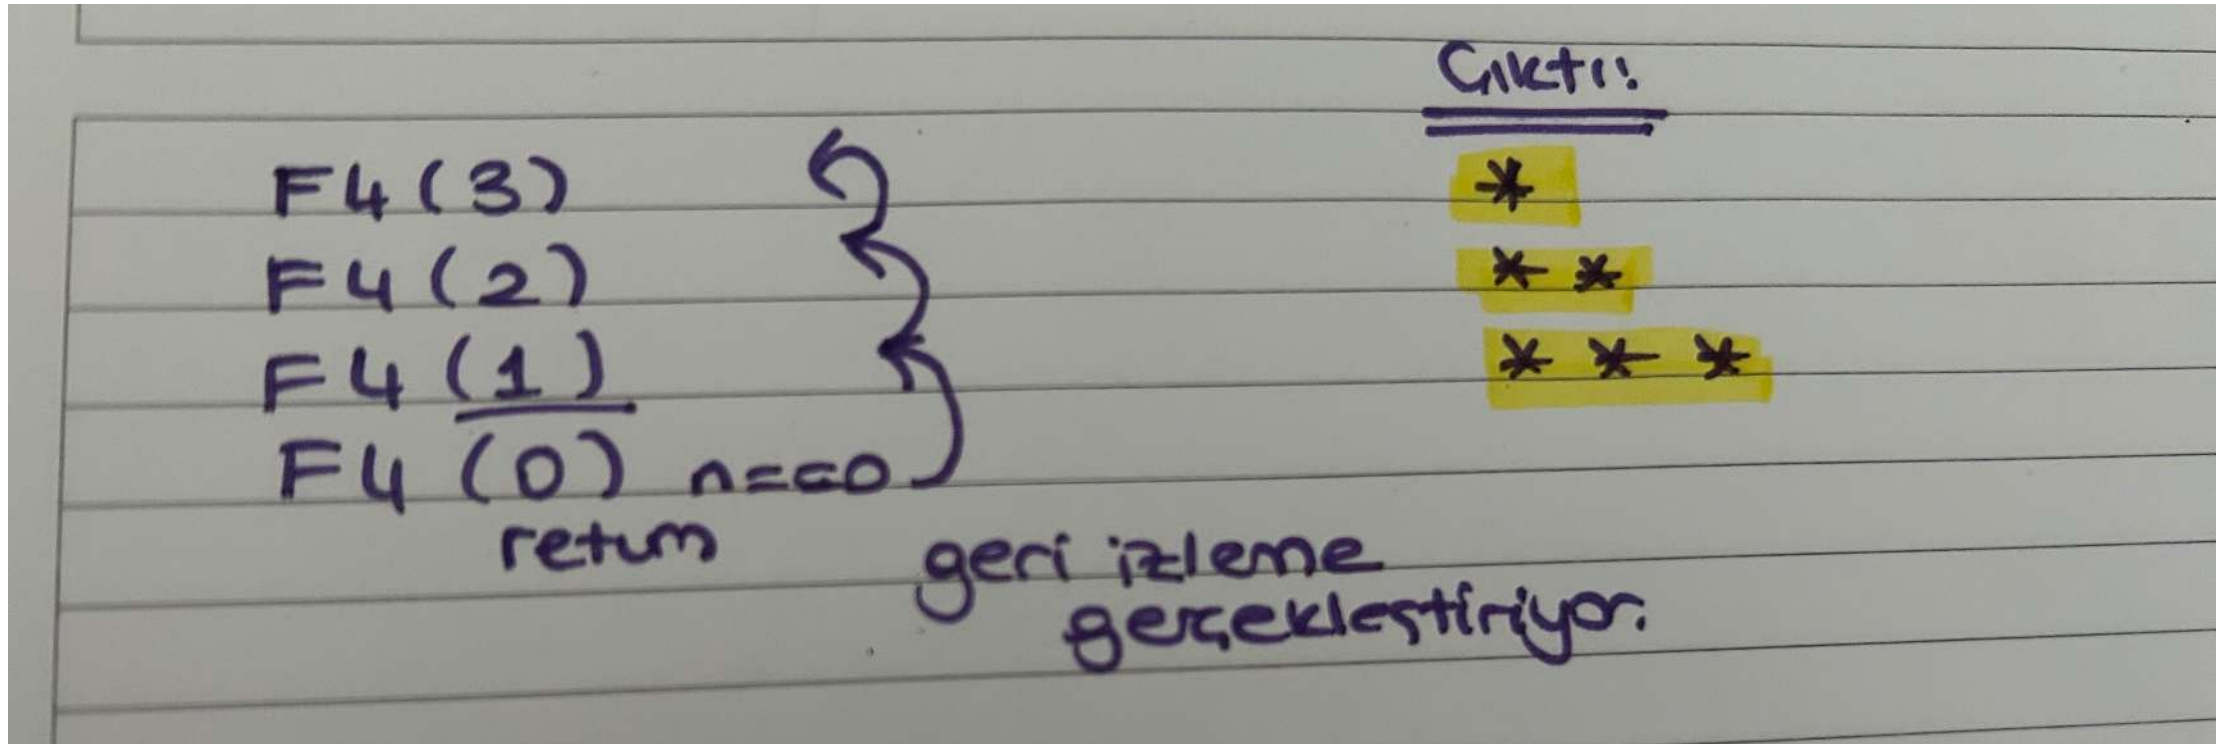 Çıktı:
F4(3)
*
F4(2)
* *
F4(1)
* * *
F4(0) n==0
return
geri izleme
gerçekleştiriyor.